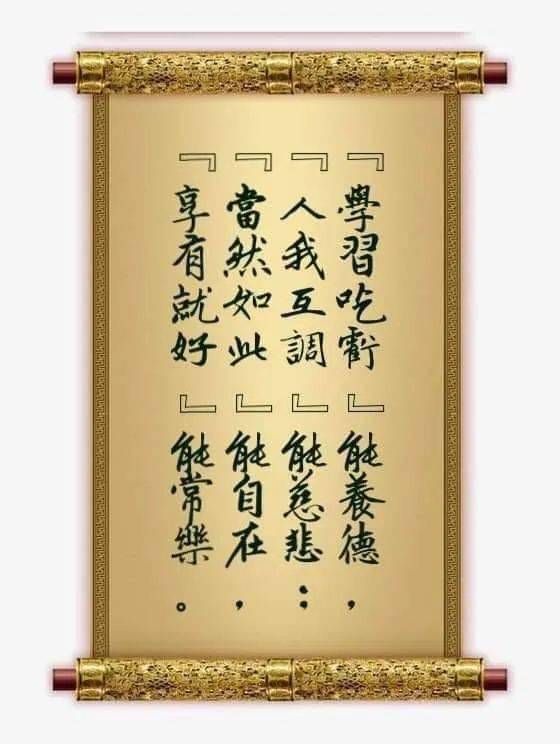 『學習吃虧』能養德，
『人我互調』能慈悲；
『當然如此』能自在，
『享有就好』能常樂。